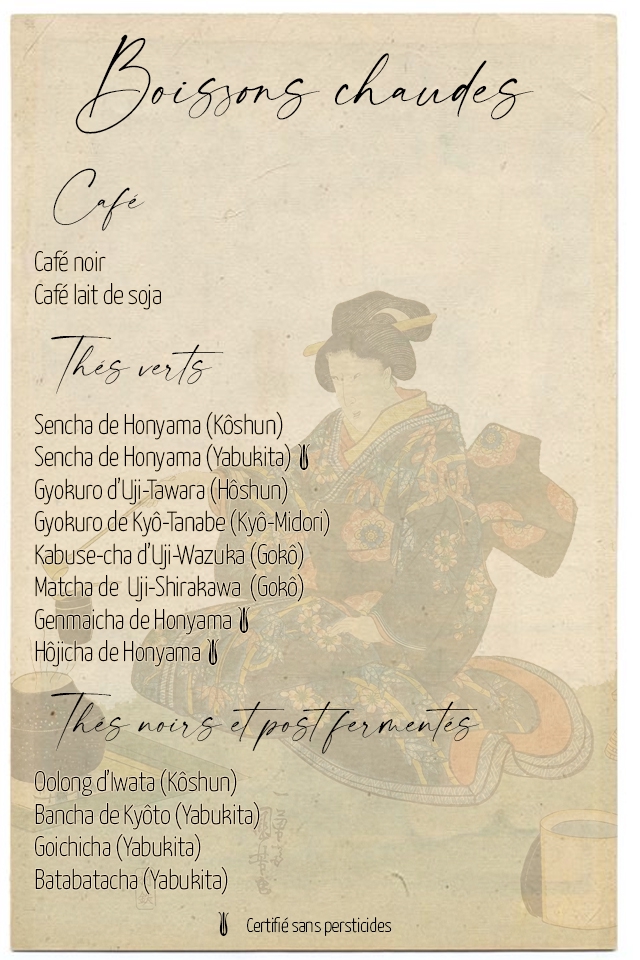 Boissons chaudes
Café
Café noir
Café lait de soja
Thés verts
Sencha de Honyama (Kôshun)
Sencha de Honyama (Yabukita)
Gyokuro d'Uji-Tawara (Hôshun)
Gyokuro de Kyô-Tanabe (Kyô-Midori)
Kabuse-cha d'Uji-Wazuka (Gokô)
Matcha de Uji-Shirakawa (Gokô)
Genmaicha de Honyama
Hôjicha de Honyama
Thés noirs et post fermentés
Oolong d'Iwata (Kôshun)
Bancha de Kyôto (Yabukita)
Goichicha (Yabukita)
Batabatacha (Yabukita)
Certifié sans persticides